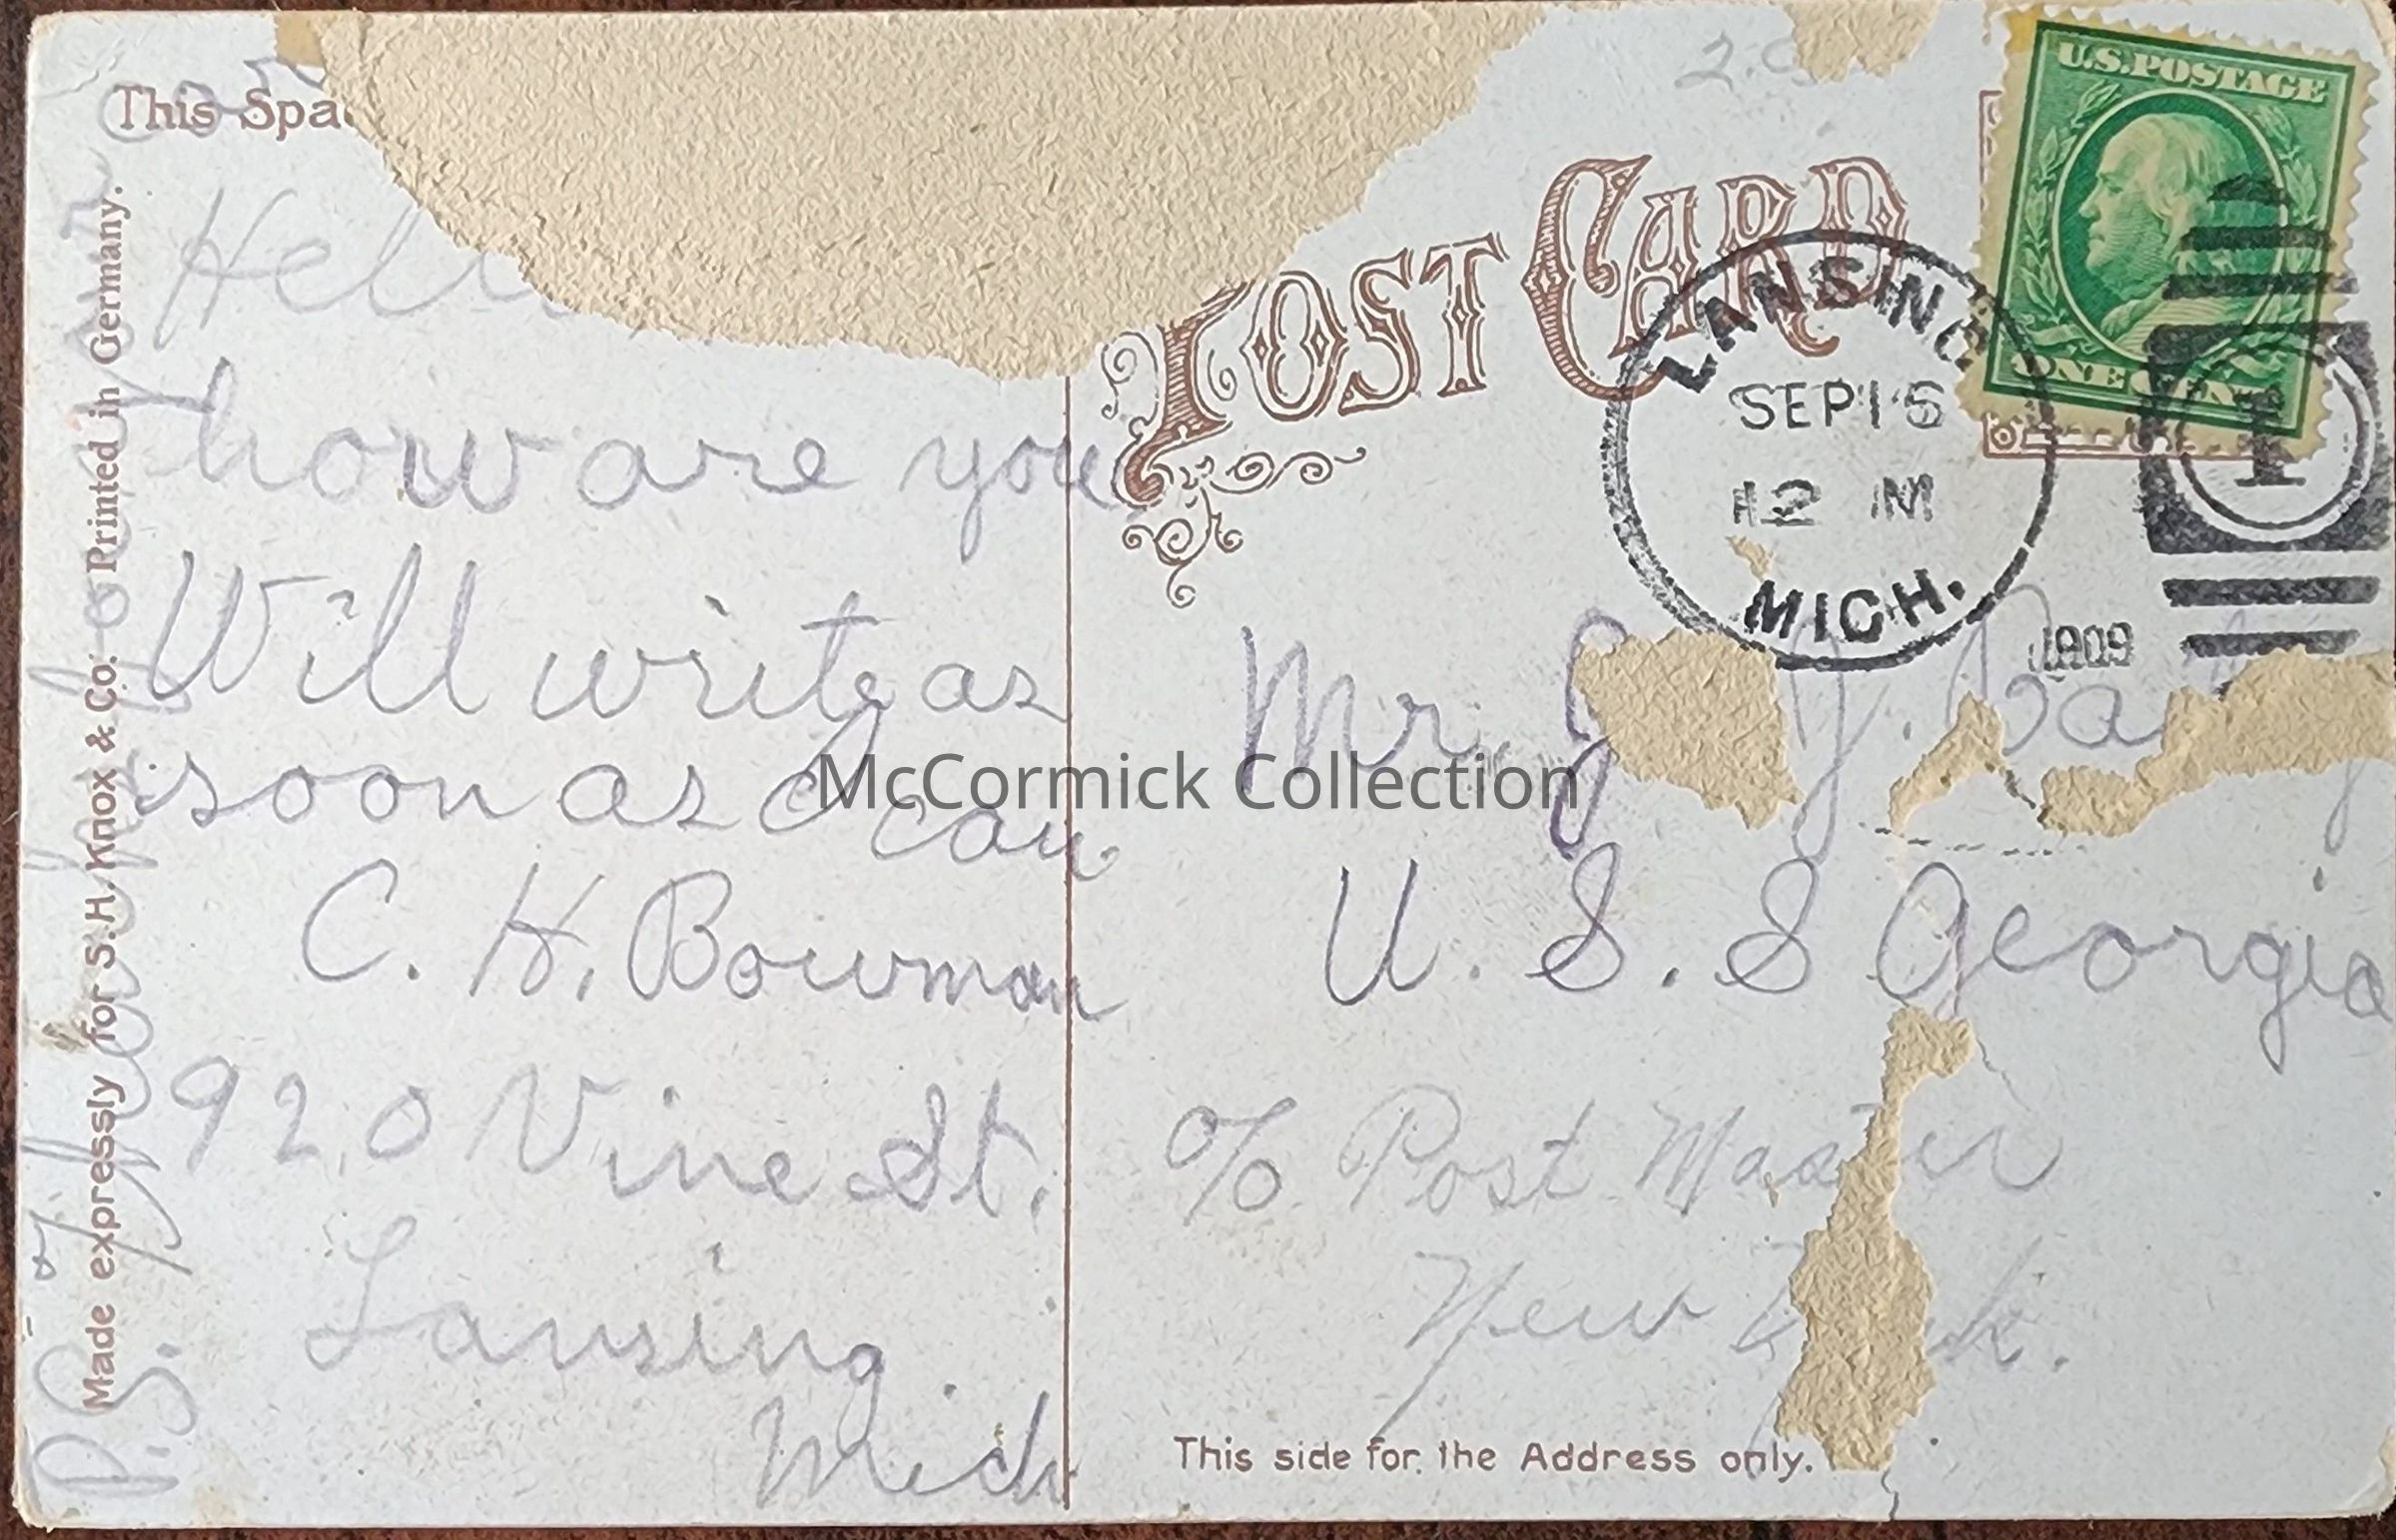 This Spa
Hell
how are you
Will write as
soon as I can
C. H. Bowman
920 Vine St.
Lansing
Mich
P.S.
Made expressly for S.H. Knox & Co. Printed in Germany.
POST CARD
U.S.POSTAGE
ONE CENT
LANSING
SEP 15
12 M
MICH.
1909
1
Mr. J.
U. S. S Georgia
c/o Post Master
New
This side for the Address only.
McCormick Collection